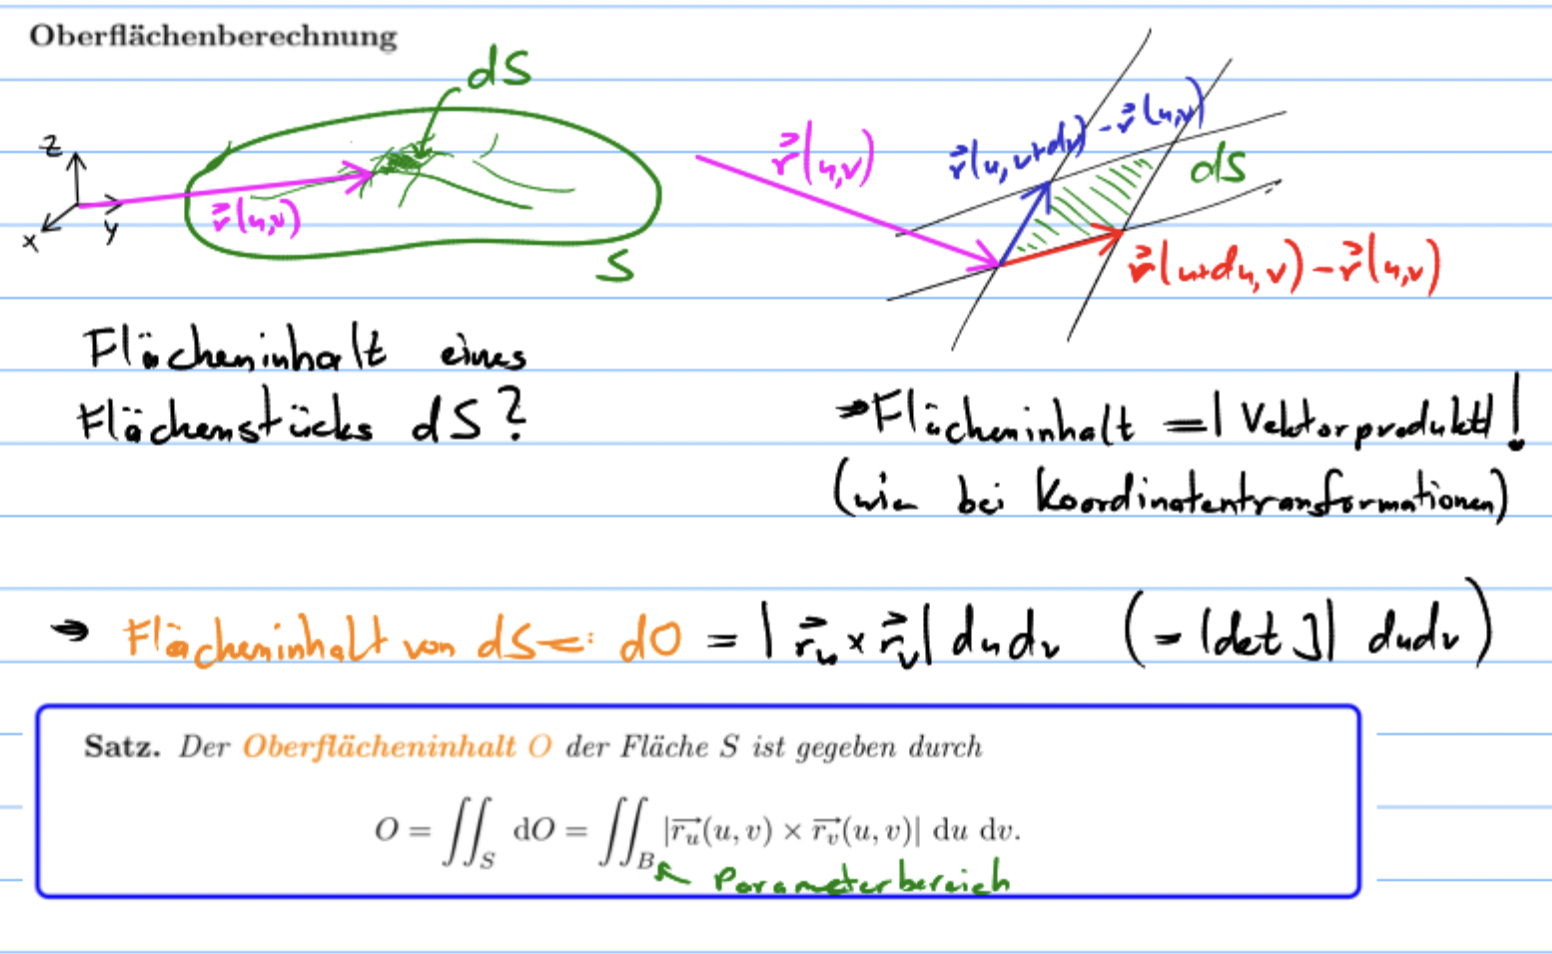 Oberflächenberechnung
dS
z
x
y
r⃗(u,v)
S
r⃗(u,v)
r⃗(u,v+dv)-r⃗(u,v)
dS
r⃗(u+du,v)-r⃗(u,v)
Flächeninhalt eines
Flächenstücks dS?
⇒Flächeninhalt =|Vektorprodukt|!
(wie bei Koordinatentransformationen)
⇒ Flächeninhalt von dS =: dO = |r⃗ᵤ × r⃗ᵥ| du dv (= |det J| du dv)
Satz. Der Oberflächeninhalt O der Fläche S ist gegeben durch
O = ∬_S dO = ∬_B |r⃗ᵤ(u, v) × r⃗ᵥ(u, v)| du dv.
Parameterbereich